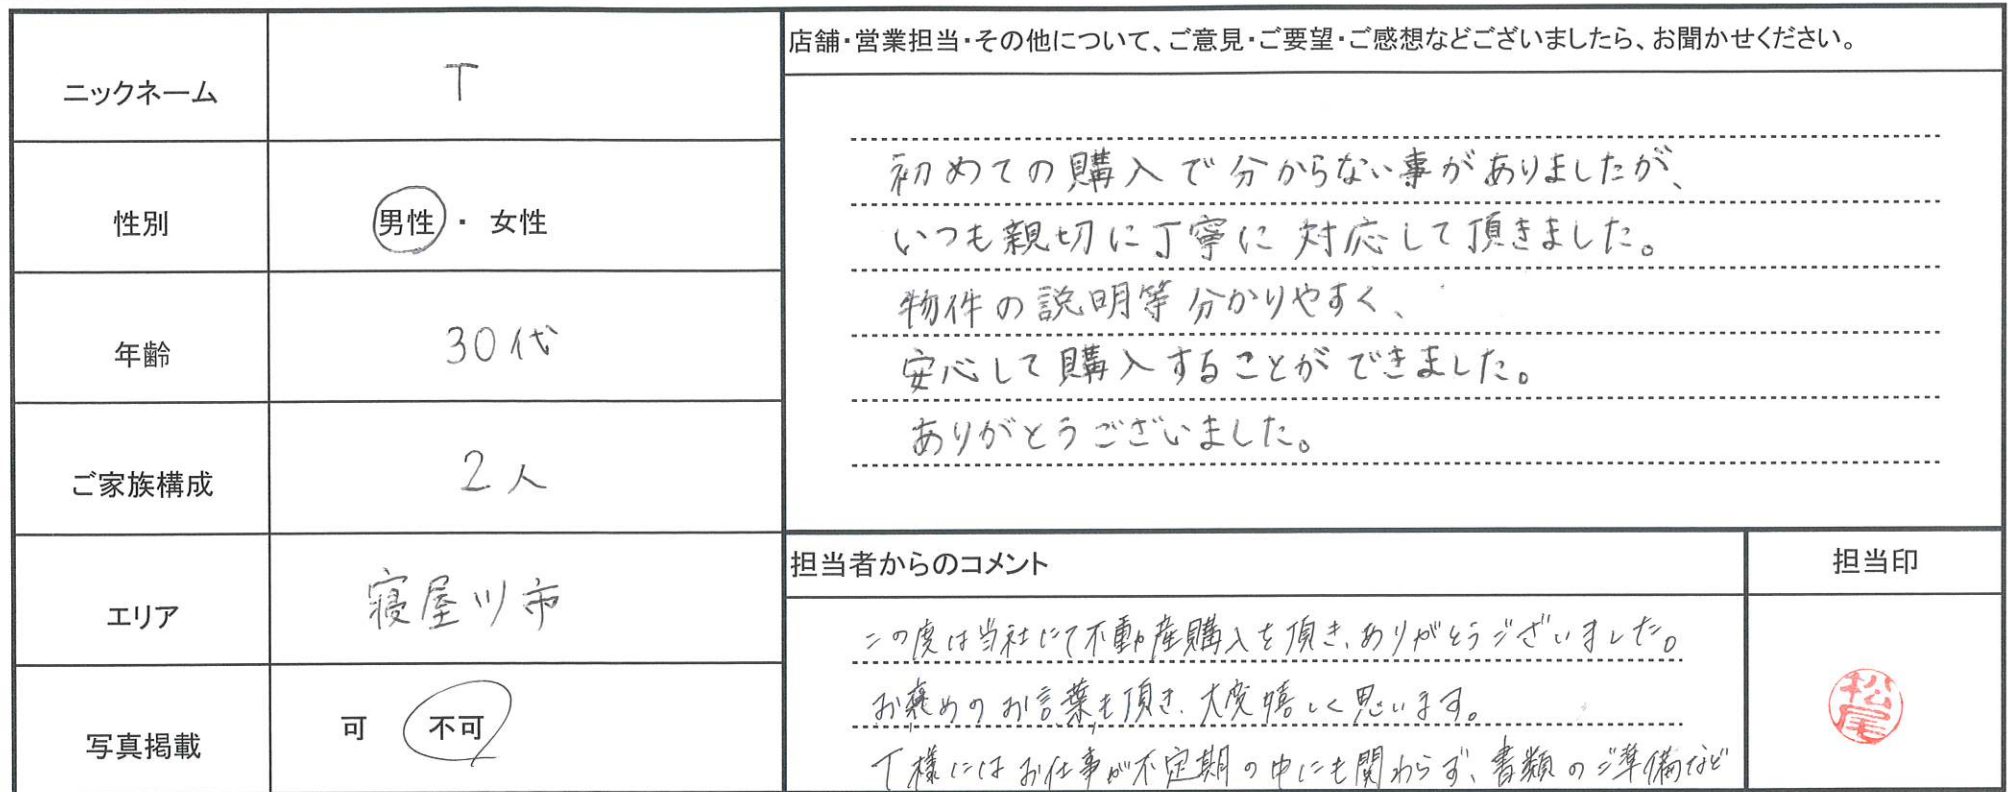 ニックネーム T
性別 男性・女性
年齢 30代
ご家族構成 2人
エリア 寝屋川市
写真掲載 可 不可
店舗・営業担当・その他について、ご意見・ご要望・ご感想などございましたら、お聞かせください。
初めての購入で分からない事がありましたが、
いつも親切に丁寧に対応して頂きました。
物件の説明等分かりやすく、
安心して購入することができました。
ありがとうございました。
担当者からのコメント
この度は当社にて不動産購入を頂き、ありがとうございました。
お褒めのお言葉も頂き、大変嬉しく思います。
T様にはお仕事が不定期の中にも関わらず、書類のご準備など
担当印
松尾